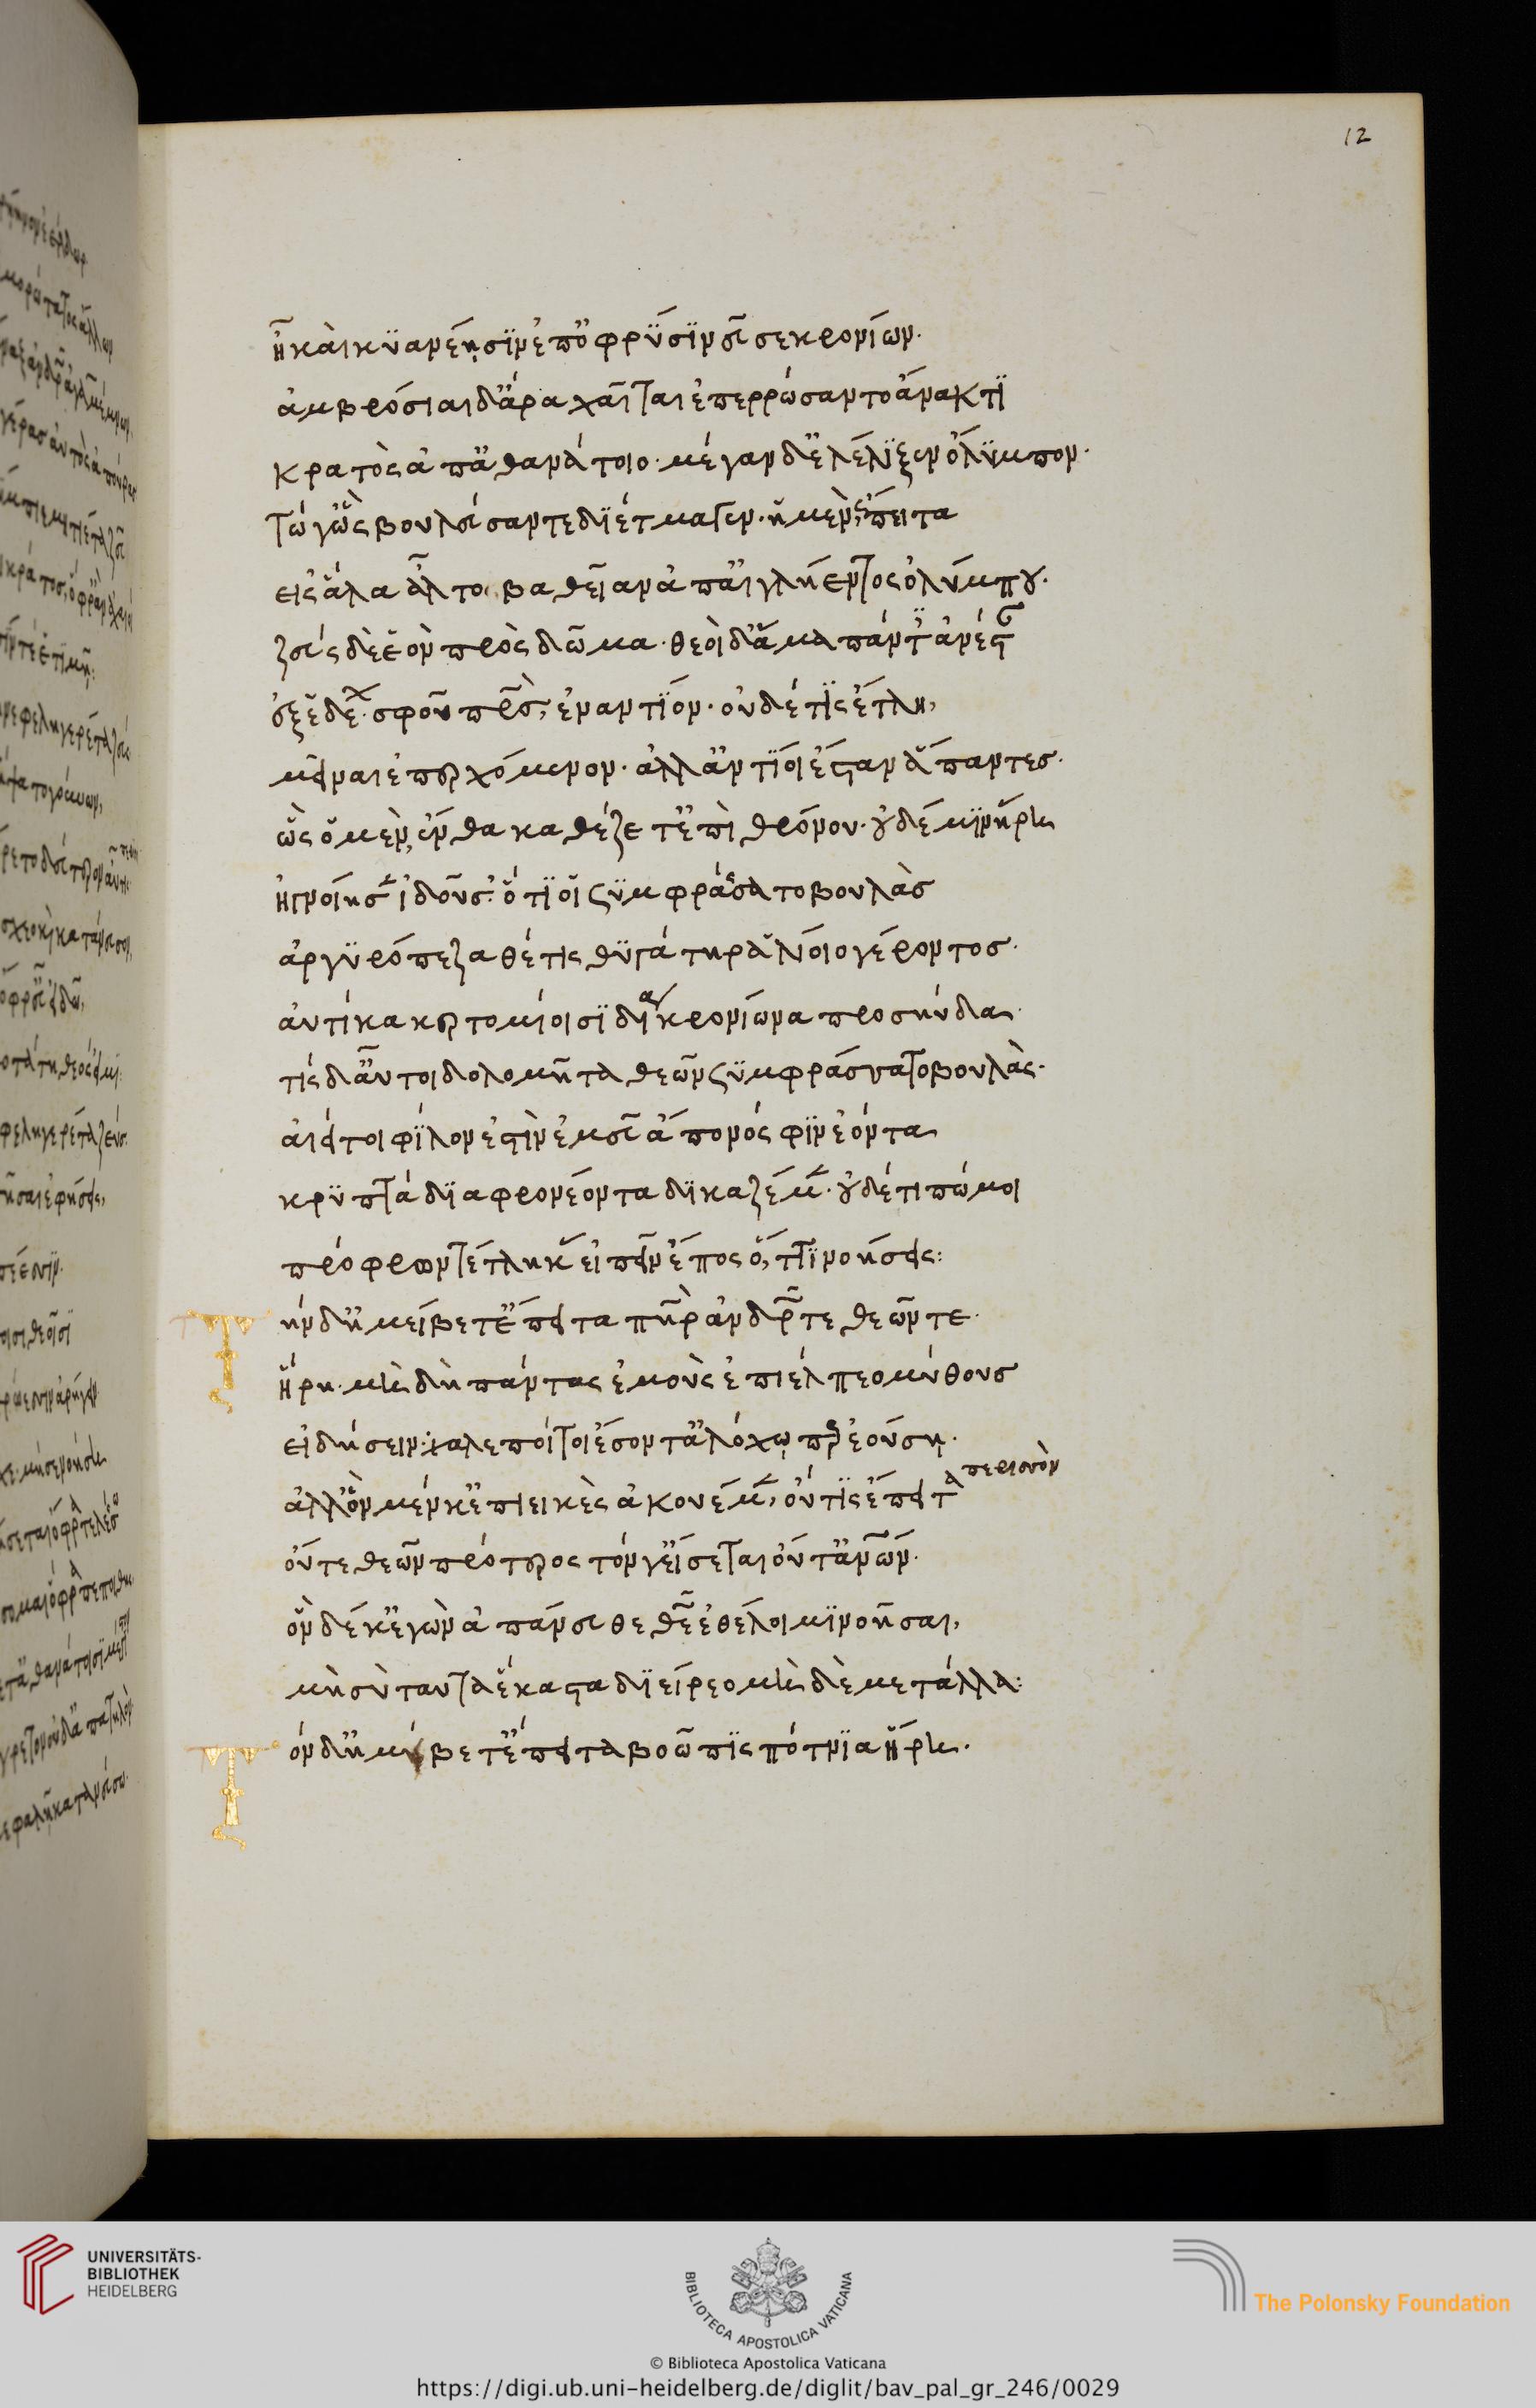 12
ἦ καὶ κυανέῃσιν ἐπ' ὀφρύσι νεῦσε κρονίων·
ἀμβρόσιαι δ' ἄρα χαῖται ἐπερρώσαντο ἄνακτι
κρατὸς ἀπ' ἀθανάτοιο· μέγαν δ' ἐλέλιξεν ὄλυμπον·
τώγ' ὣς βουλεύσαντε διέτμαγεν· ἡ μὲν ἔπειτα
εἰς ἅλα ἆλτο βαθεῖαν ἀπ' αἰγλήεντος ὀλύμπου·
ζεὺς δὲ ἑὸν πρὸς δῶμα· θεοὶ δ' ἅμα πάντ' ἀνέσταν
ἐξ ἑδέων· σφοῦ πρὸς ἐναντίον· οὐδέ τις ἔτλη,
μεῖναι ἐπερχόμενον· ἀλλ' ἀντίοι ἔσταν ἅπαντες·
ὣς ὁ μὲν ἔνθα καθέζετ' ἐπὶ θρόνου· οὐδέ μιν ἥρη
ἠγνοίησεν ἰδοῦσ' ὅτι οἱ συμφράσσατο βουλὰς
ἀργυρόπεζα θέτις θυγάτηρ ἁλίοιο γέροντος·
αὐτίκα κερτομίοισι δία κρονίωνα προσηύδα·
τίς δ' αὖ τοι δολομῆτα θεῶν συμφράσσατο βουλὰς·
αἰεί τοι φίλον ἐστὶν ἐμεῦ ἀπονόσφιν ἐόντα
κρυπτάδια φρονέοντα δικαζέμεν· οὐδέ τι πώ μοι
πρόφρων τέτληκας εἰπεῖν ἔπος ὅ,ττι νοήσεις:
Τὴν δ' ἠμείβετ' ἔπειτα πατὴρ ἀνδρῶν τε θεῶν τε·
ἥρη· μὴ δὴ πάντας ἐμοὺς ἐπιέλπεο μύθους
εἰδήσειν· χαλεποί τοι ἔσοντ' ἀλόχῳ περ ἐούσῃ·
ἀλλ' ὃν μέν κ' ἐπιεικὲς ἀκουέμεν, οὔτις ἔπειτα
περισσὸν
οὔτε θεῶν πρότερος τόν γ' εἴσεται οὔτ' ἀνῶν·
ὃν δέ κ' ἐγὼν ἀπάνευθε θεῶν ἐθέλοιμι νοῆσαι,
μὴ σὺ ταῦτα ἕκαστα διείρεο μὴ δὲ μετάλλα:
Τὸν δ' ἠμείβετ' ἔπειτα βοῶπις πότνια ἥρη·
UNIVERSITÄTS-
BIBLIOTHEK
HEIDELBERG
BIBLIOTECA APOSTOLICA VATICANA
The Polonsky Foundation
© Biblioteca Apostolica Vaticana
https://digi.ub.uni-heidelberg.de/diglit/bav_pal_gr_246/0029